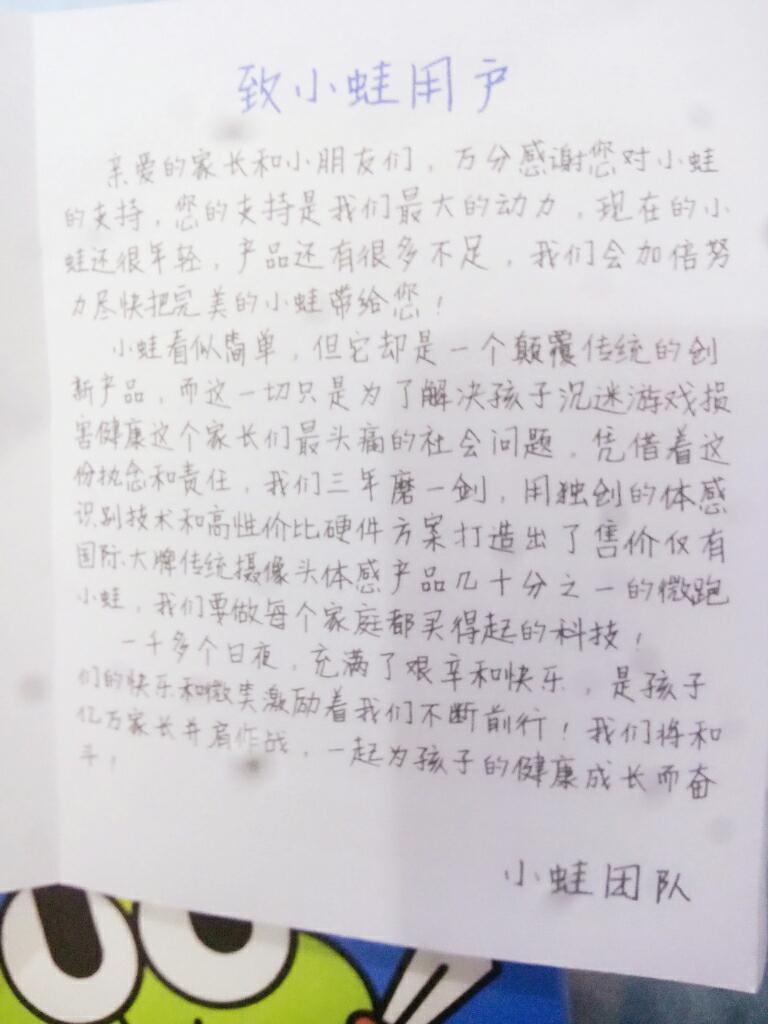 致小蛙用户
亲爱的家长和小朋友们，万分感谢您对小蛙
的支持，您的支持是我们最大的动力，现在的小
蛙还很年轻，产品还有很多不足，我们会加倍努
力尽快把完美的小蛙带给您！
小蛙看似简单，但它却是一个颠覆传统的创
新产品，而这一切只是为了解决孩子沉迷游戏损
害健康这个家长们最头痛的社会问题，凭借着这
份执念和责任，我们三年磨一剑，用独创的体感
识别技术和高性价比硬件方案打造出了售价仅有
国际大牌传统摄像头体感产品几十分之一的微跑
小蛙，我们要做每个家庭都买得起的科技！
一千多个日夜，充满了艰辛和快乐，是孩子
们的快乐和微笑激励着我们不断前行！我们将和
亿万家长并肩作战，一起为孩子的健康成长而奋
斗！
小蛙团队